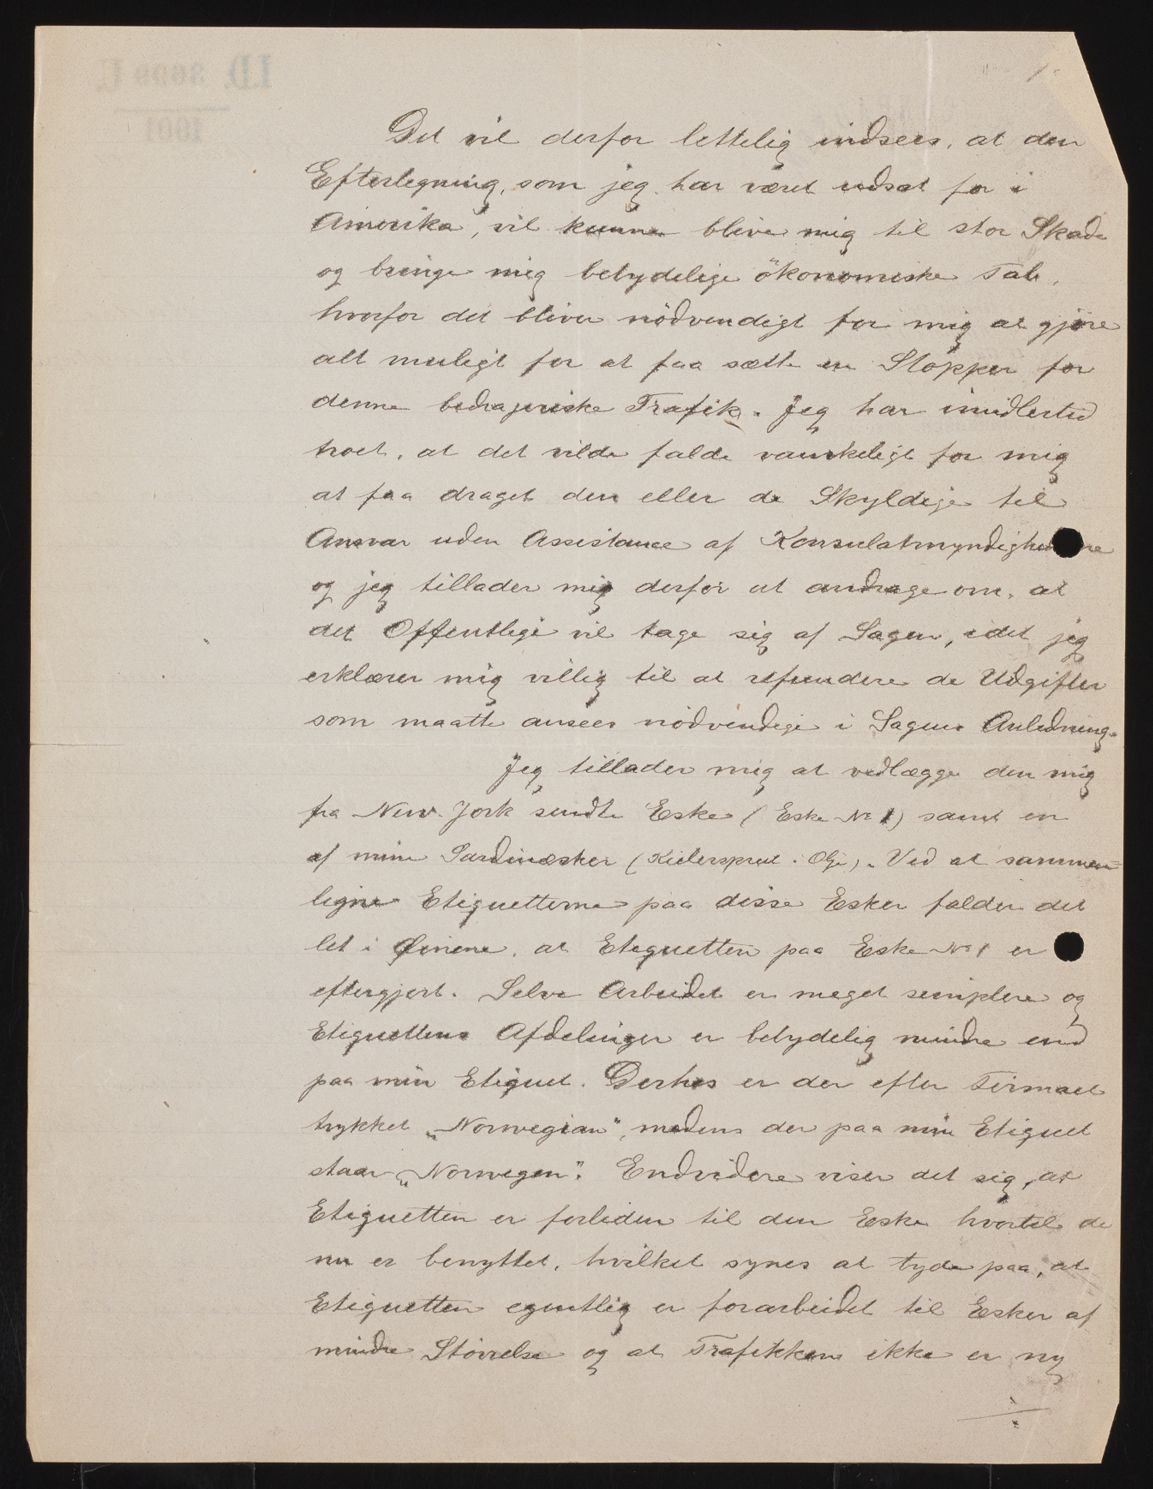 Det vil derfor lettelig indsees, at den
Efterlegning, som jeg har været udsat for i
Amerika, vil kunne blive mig til stor Skade
og bringe mig betydelige ökonomiske Tab,
hvorfor det bliver nödvendigt for mig at gjöre
alt muligt for at faa sætte en Stopper for
denne bedrageriske Trafik. Jeg har imidlertid
troet, at det vilde falde vanskeligt for mig
at faa draget den eller de Skyldige til
Ansvar uden Assistance af Konsulatmyndighederne
og jeg tillader mig derfor at andrage om, at
det Offentlige vil tage sig af Sagen, idet jeg
erklærer mig villig til at refundere de Udgifter
som maatte ansees nödvendige i Sagens Anledning.
Jeg tillader mig at vedlægge den mig
fra New. Jork sendte Eske (Eske No 1) samt en
af mine Sardinæsker (Kielersprot i Olje). Ved at sammen-
ligne Etiquetterne paa disse Esker falder det
let i Øinene, at Etiquetten paa Eske No 1 er
eftergjort. Selve Arbeidet er meget simplere og
Etiquettens Afdelinger er betydelig mindre end
paa min Etiquet. Derhos er der efter Firmaet
trykket „Norwegian", medens der paa min Etiquet
staar „Norwegen". Endvidere viser det sig, at
Etiquetten er forliden til den Eske hvortil de
nu er benyttet, hvilket synes at tyde paa, at
Etiquetten egentlig er forarbeidet til Esker af
mindre Störrelse og at Trafikken ikke er ny